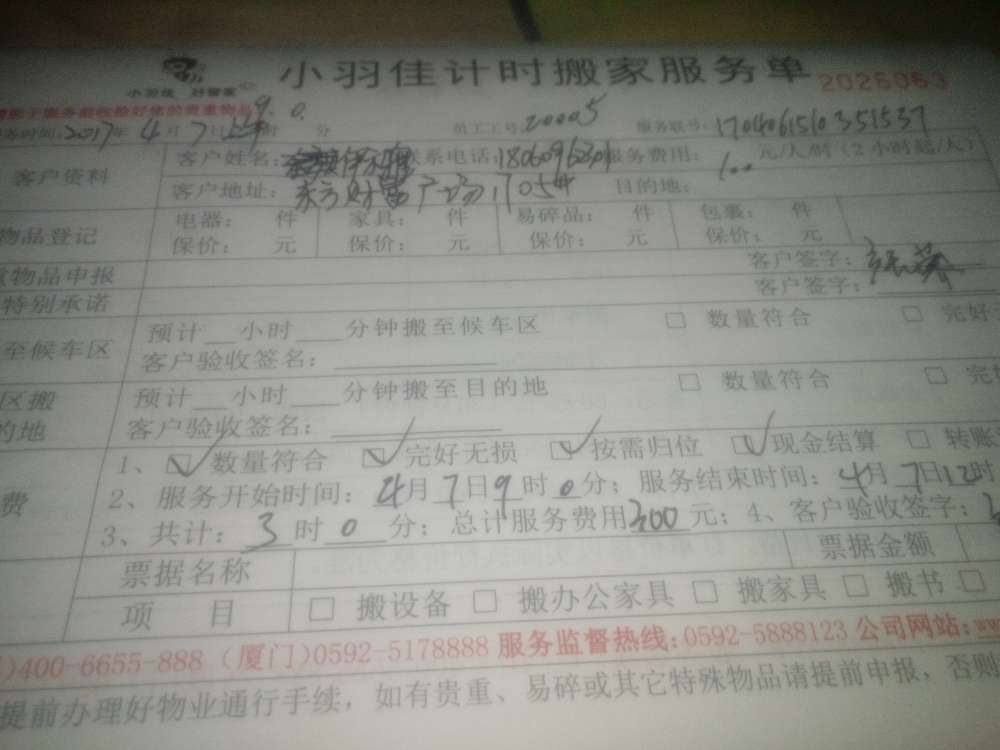 小羽佳计时搬家服务单 2026063
小羽佳 好管家
务时间: 2017年 4月 7日 上午 9时 0分 员工工号: 20005 服务联号: 1704061510351537
客户资料 客户姓名: 联系电话: 服务费用: 100 元/人/时 (2小时起/人)
客户地址: 东方财富广场 1705# 目的地:
物品登记 电器: 件 家具: 件 易碎品: 件 包裹: 件
保价: 元 保价: 元 保价: 元 保价: 元
物品申报 客户签字:
特别承诺 客户签字:
至候车区 预计 小时 分钟搬至候车区 □ 数量符合 □ 完好
客户验收签名:
区搬 预计 小时 分钟搬至目的地 □ 数量符合 □ 完
的地 客户验收签名:
1、☑ 数量符合 ☑ 完好无损 ☑ 按需归位 ☑ 现金结算 □ 转账
费 2、服务开始时间: 4月 7日 9时 0分; 服务结束时间: 4月 7日 12时
3、共计: 3 时 0 分; 总计服务费用 300 元; 4、客户验收签字:
票据名称 票据金额
项 目 □ 搬设备 □ 搬办公家具 □ 搬家具 □ 搬书 □
)400-6655-888 (厦门)0592-5178888 服务监督热线:0592-5888123 公司网站:
提前办理好物业通行手续,如有贵重、易碎或其它特殊物品请提前申报,否则